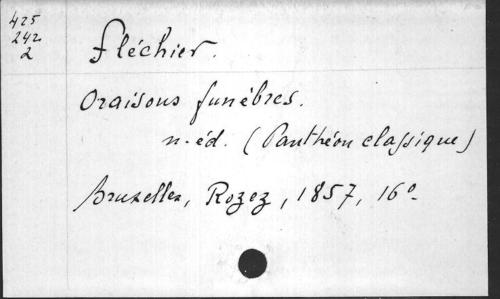 425
242
2
Fléchier.
Oraisons funèbres.
n. éd. (Panthéon classique)
Bruxelles, Rozez, 1857, 16°.